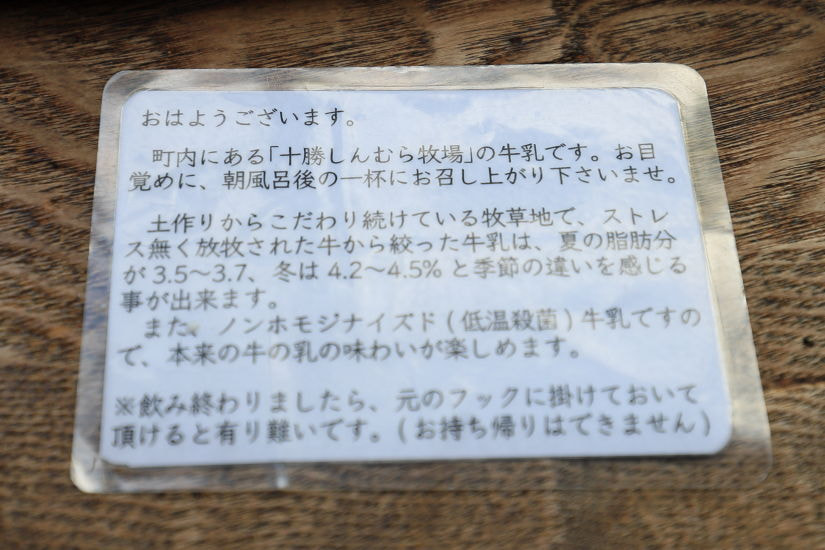 おはようございます。
町内にある「十勝しんむら牧場」の牛乳です。お目
覚めに、朝風呂後の一杯にお召し上がり下さいませ。
土作りからこだわり続けている牧草地で、ストレ
ス無く放牧された牛から絞った牛乳は、夏の脂肪分
が 3.5～3.7、冬は 4.2～4.5% と季節の違いを感じる
事が出来ます。
また、ノンホモジナイズド ( 低温殺菌 ) 牛乳ですの
で、本来の牛の乳の味わいが楽しめます。
※飲み終わりましたら、元のフックに掛けておいて
頂けると有り難いです。( お持ち帰りはできません )